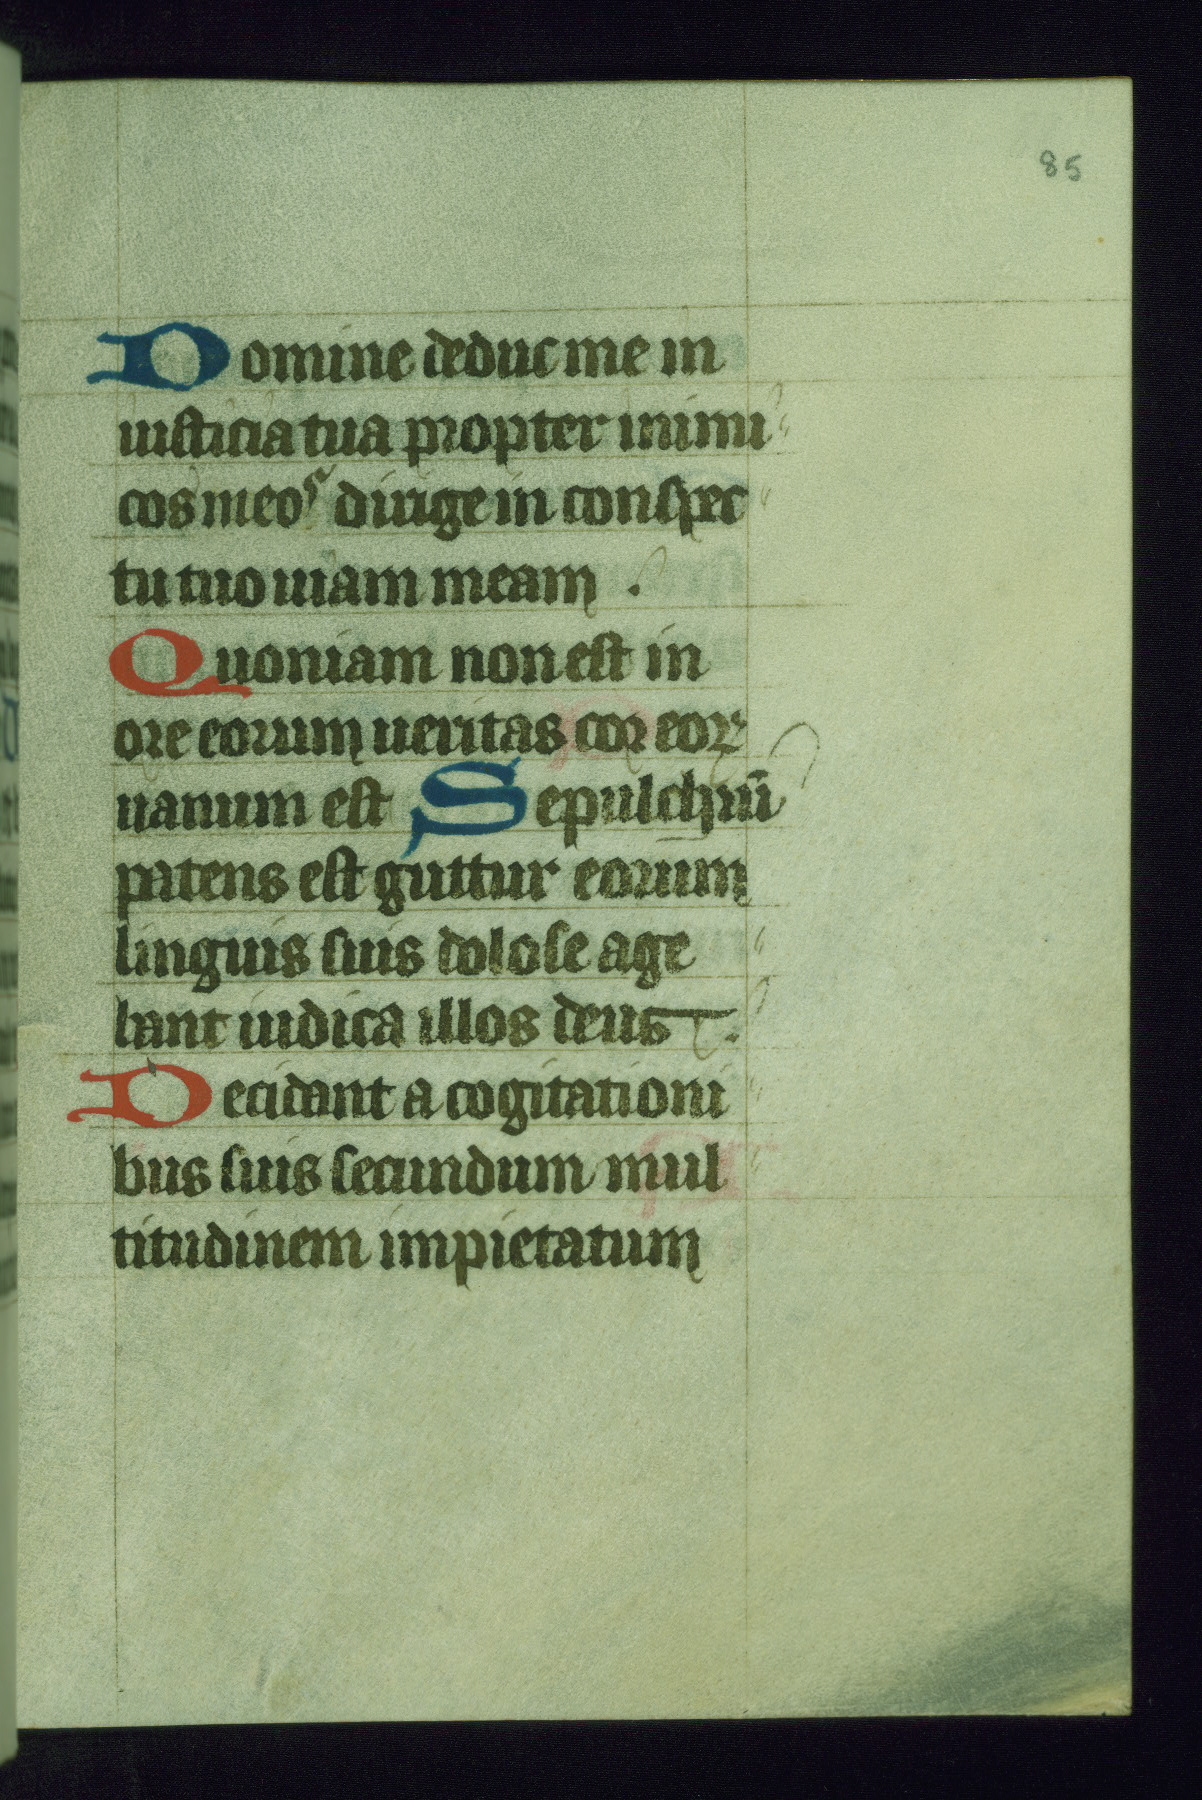 85
Domine deduc me in
iusticia tua propter inimi
cos meos dirige in conspec
tu tuo uiam meam .
Quoniam non est in
ore eorum ueritas cor eorꝝ
uanum est Sepulchrū
patens est guttur eorum
linguis suis dolose age
bant iudica illos deus .
Decidant a cogitationi
bus suis secundum mul
titudinem impietatum